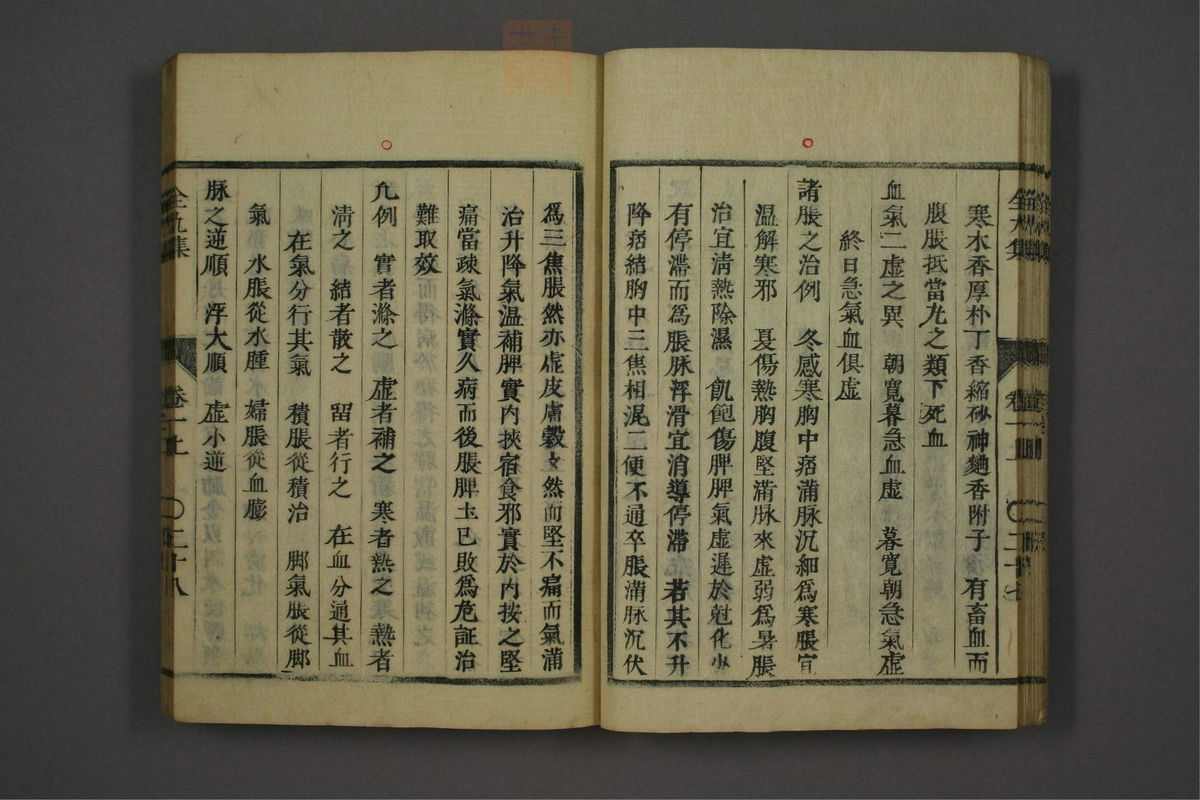 寒木香厚朴丁香縮砂神麯香附子　有畜血而
腹脹抵當丸之類下死血
血氣二虛之異　朝寬暮急血虛　暮寬朝急氣虛
終日急氣血俱虛
諸脹之治例　冬感寒胸中痞滿脉沉細爲寒脹宜
温解寒邪　夏傷熱胸腹堅滿脉來虛弱爲暑脹
治宜清熱除濕　飢飽傷脾脾氣虛遲於尅化少
有停滯而爲脹脉浮滑宜消導停滯　若其不升
降痞結胸中三焦相混二便不通卒脹滿脉沉伏
爲三焦脹然亦虛皮膚縠々然而堅不痛而氣滿
治升降氣温補脾實内挾宿食邪實於内按之堅
痛當疎氣滌實久病而後脹脾土已敗爲危証治
難取效
凢例　實者滌之　虛者補之　寒者熱之　熱者
清之　結者散之　留者行之　在血分通其血
在氣分行其氣　積脹從積治　脚氣脹從脚
氣　水脹從水腫　婦脹從血膨
脉之逆順　浮大順　虛小逆
全九集　卷二上　〇二十八